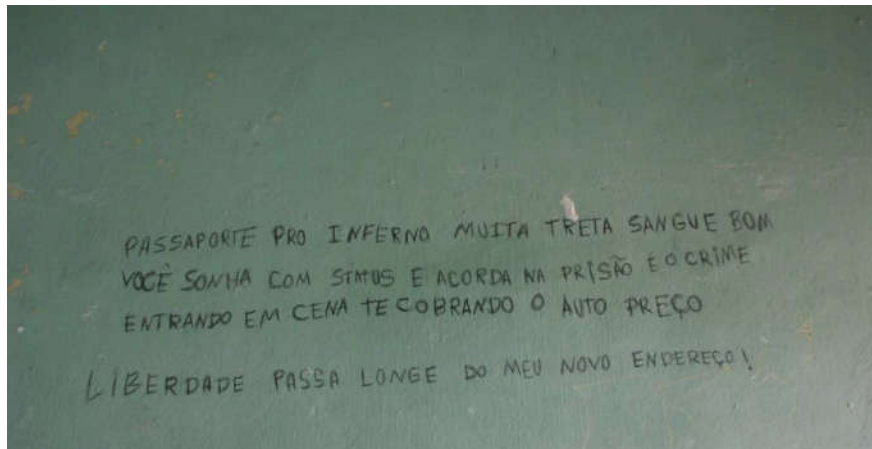 PASSAPORTE PRO INFERNO MUITA TRETA SANGUE BOM
VOCÊ SONHA COM STATUS E ACORDA NA PRISÃO E O CRIME
ENTRANDO EM CENA TE COBRANDO O AUTO PREÇO
LIBERDADE PASSA LONGE DO MEU NOVO ENDEREÇO!